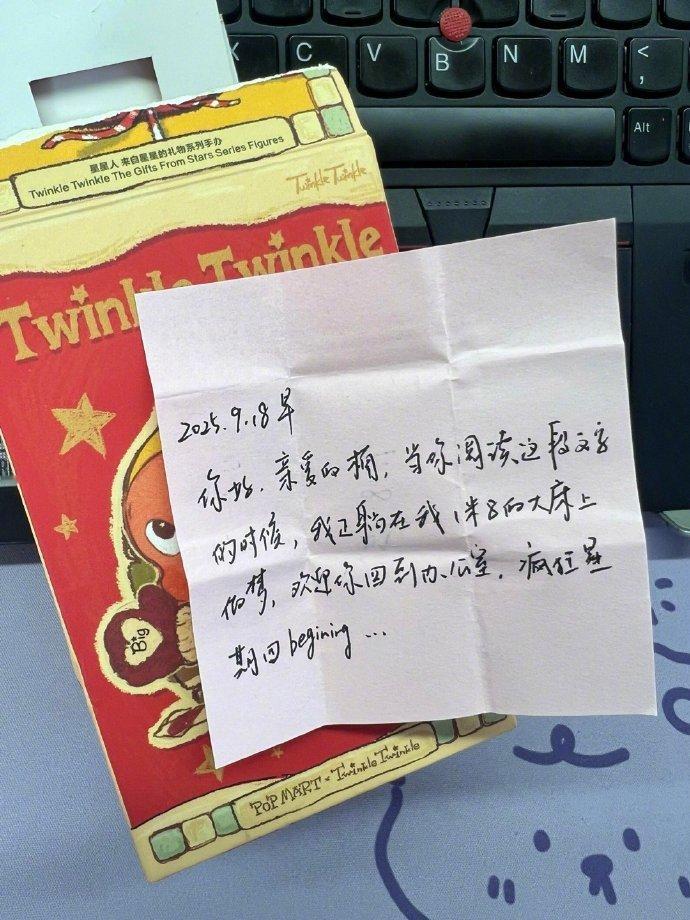 X C V B N M < ,
Alt
星星人 来自星星的礼物系列手办
Twinkle Twinkle The Gifts From Stars Series Figures
Twinkle Twinkle
Twinkle Twinkle
2025.9.18 早
你好，亲爱的桶，当你阅读这段文字
的时候，我正躺在我1米8的大床上
做梦，欢迎你回到办公室，疯狂星
期四 begining ...
Big
POP MART × Twinkle Twinkle